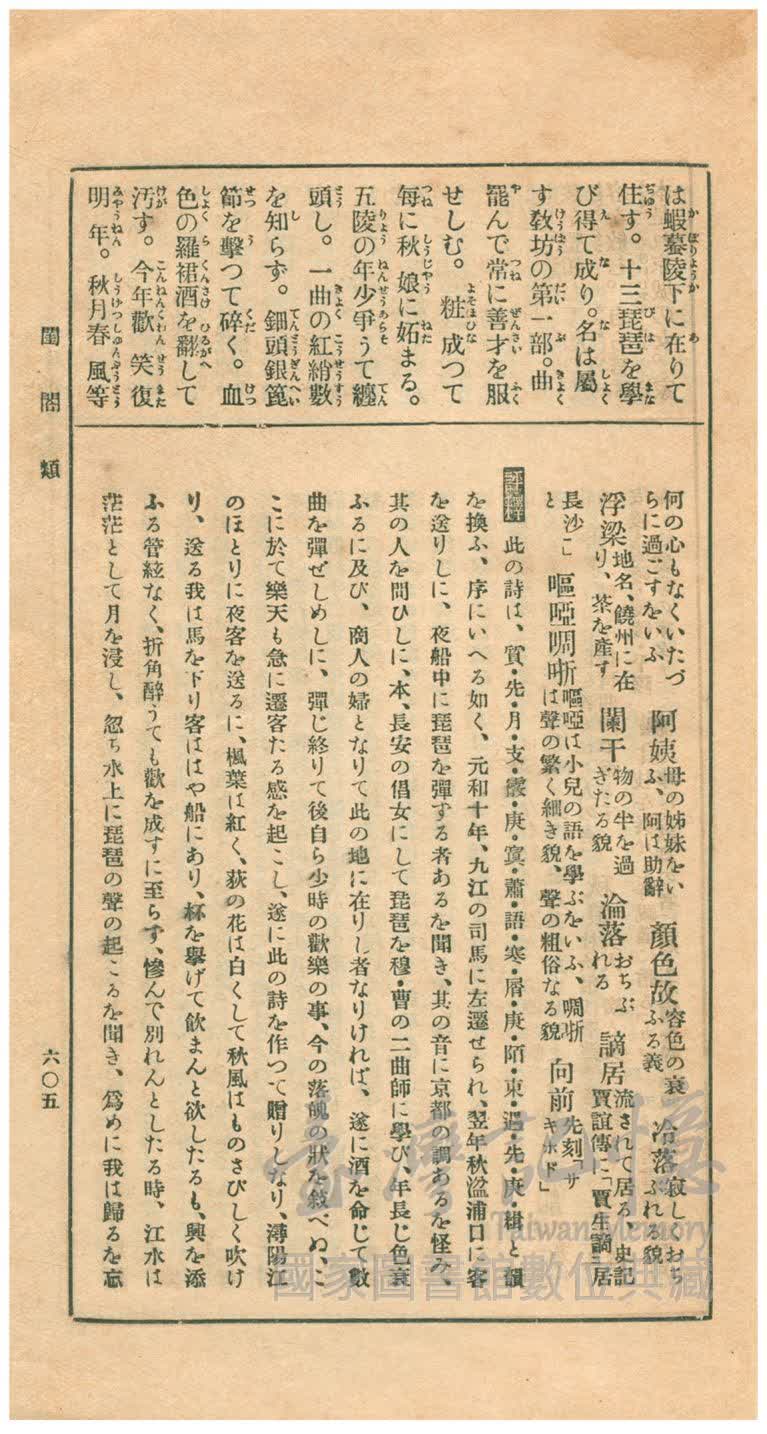 は蝦蟇陵下に在りて
住す。十三琵琶を學
び得て成り。名は屬
す敎坊の第一部。曲
罷んで常に善才を服
せしむ。粧成つて
每に秋娘に妬まる。
五陵の年少爭うて纏
頭し。一曲の紅綃數
を知らず。鈿頭銀篦
節を擊つて碎く。血
色の羅裙酒を翻して
汚す。今年歡笑復
明年。秋月春風等
何の心もなくいたづらに過ごすをいふ 阿姨 母の姊妹をいふ、阿は助辭 顏色故 容色の衰ふる義 冷落 寂しくおちぶれる貌
浮梁 地名、饒州に在り、茶を產す 闌干 物の半を過ぎたる貌 淪落 おちぶれる 謫居 流されて居る、史記賈誼傳に「賈生謫居
長沙」と 嘔啞啁哳 嘔啞は小兒の語を學ぶをいふ、啁哳は聲の繁く細き貌、聲の粗俗なる貌 向前 先刻「サキホド」
評釋 此の詩は、質・先・月・支・霰・庚・寘・蕭・語・寒・屑・庚・陌・東・遇・先・庚・緝と韻
を換ふ、序にいへる如く、元和十年、九江の司馬に左遷せられ、翌年秋湓浦口に客
を送りしに、夜船中に琵琶を彈ずる者あるを聞き、其の音に京都の調あるを怪み、
其の人を問ひしに、本、長安の倡女にして琵琶を穆・曹の二曲師に學び、年長じ色衰
ふるに及び、商人の婦となりて此の地に在りし者なりければ、遂に酒を命じて數
曲を彈ぜしめしに、彈じ終りて後自ら少時の歡樂の事、今の落魄の狀を敍べぬ、こ
こに於て樂天も急に遷客たる感を起こし、遂に此の詩を作つて贈りしなり、潯陽江
のほとりに夜客を送るに、楓葉は紅く、荻の花は白くして秋風はものさびしく吹け
り、送る我は馬を下り客ははや船にあり、杯を擧げて飮まんと欲したるも、興を添
ふる管絃なく、折角醉うても歡を成すに至らず、慘んで別れんとしたる時、江水は
茫茫として月を浸し、忽ち水上に琵琶の聲の起こるを聞き、爲めに我は歸るを忘
閨閤類
六〇五
臺灣記憶
Taiwan Memory
國家圖書館數位典藏